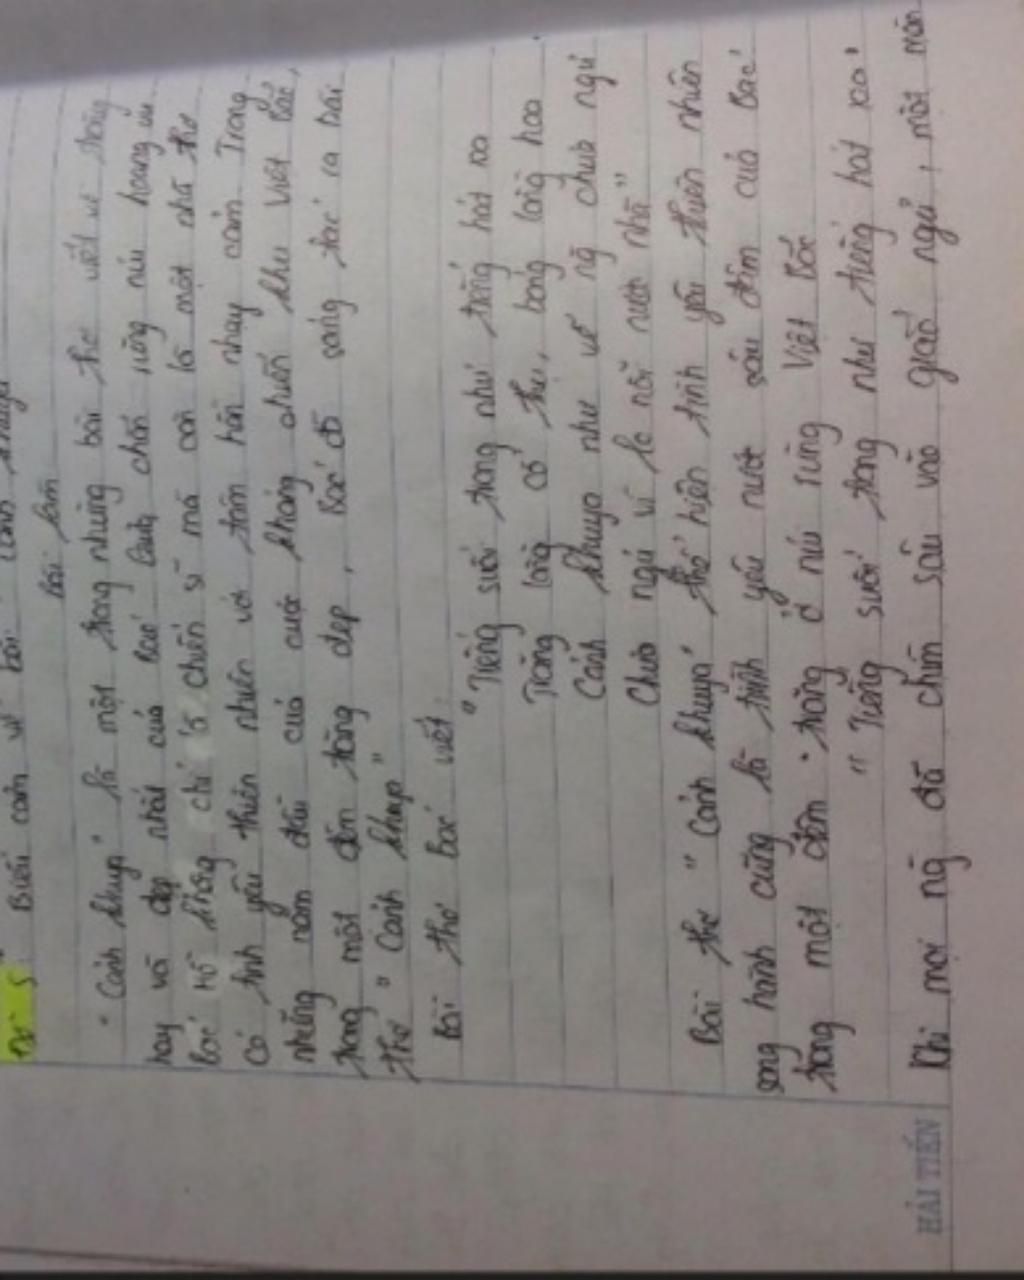 Biểu cảm về bài " Cảnh khuya
Bài làm
" Cảnh khuya" là một trong những bài thơ viết về trăng
hay và đẹp nhất của Bác. Bác, chốn rừng núi hoang vu
Bác Hồ không chỉ là chiến sĩ mà còn là một nhà thơ
Có tình yêu thiên nhiên với tâm hồn nhạy cảm. Trong
những năm đầu của cuộc kháng chiến khu Việt Bắc,
trong một đêm trăng đẹp, Bác đã sáng tác ra bài
thơ " Cảnh khuya"
Bài thơ Bác viết:
" Tiếng suối trong như tiếng hát xa
Trăng lồng cổ thụ, bóng lồng hoa
Cảnh khuya như vẽ ng chưa ngủ
Chưa ngủ vì lo nỗi nước nhà"
Bài thơ " Cảnh khuya" thể hiện tình yêu thiên nhiên
song hành cũng là tình yêu nước sâu đậm của Bác
trong một đêm trăng ở núi rừng Việt Bắc
" Tiếng suối trong như tiếng hát xa"
Khi mọi ng đã chìm sâu vào giấc ngủ, một màn
HẢI TIẾN